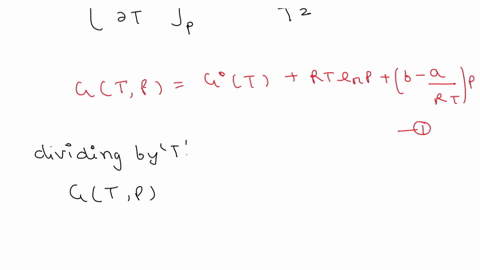 ( ∂T )P T2
G(T,P) = G°(T) + RT ln P + (b - a/RT) P
—①
dividing by 'T'.
G(T,P)